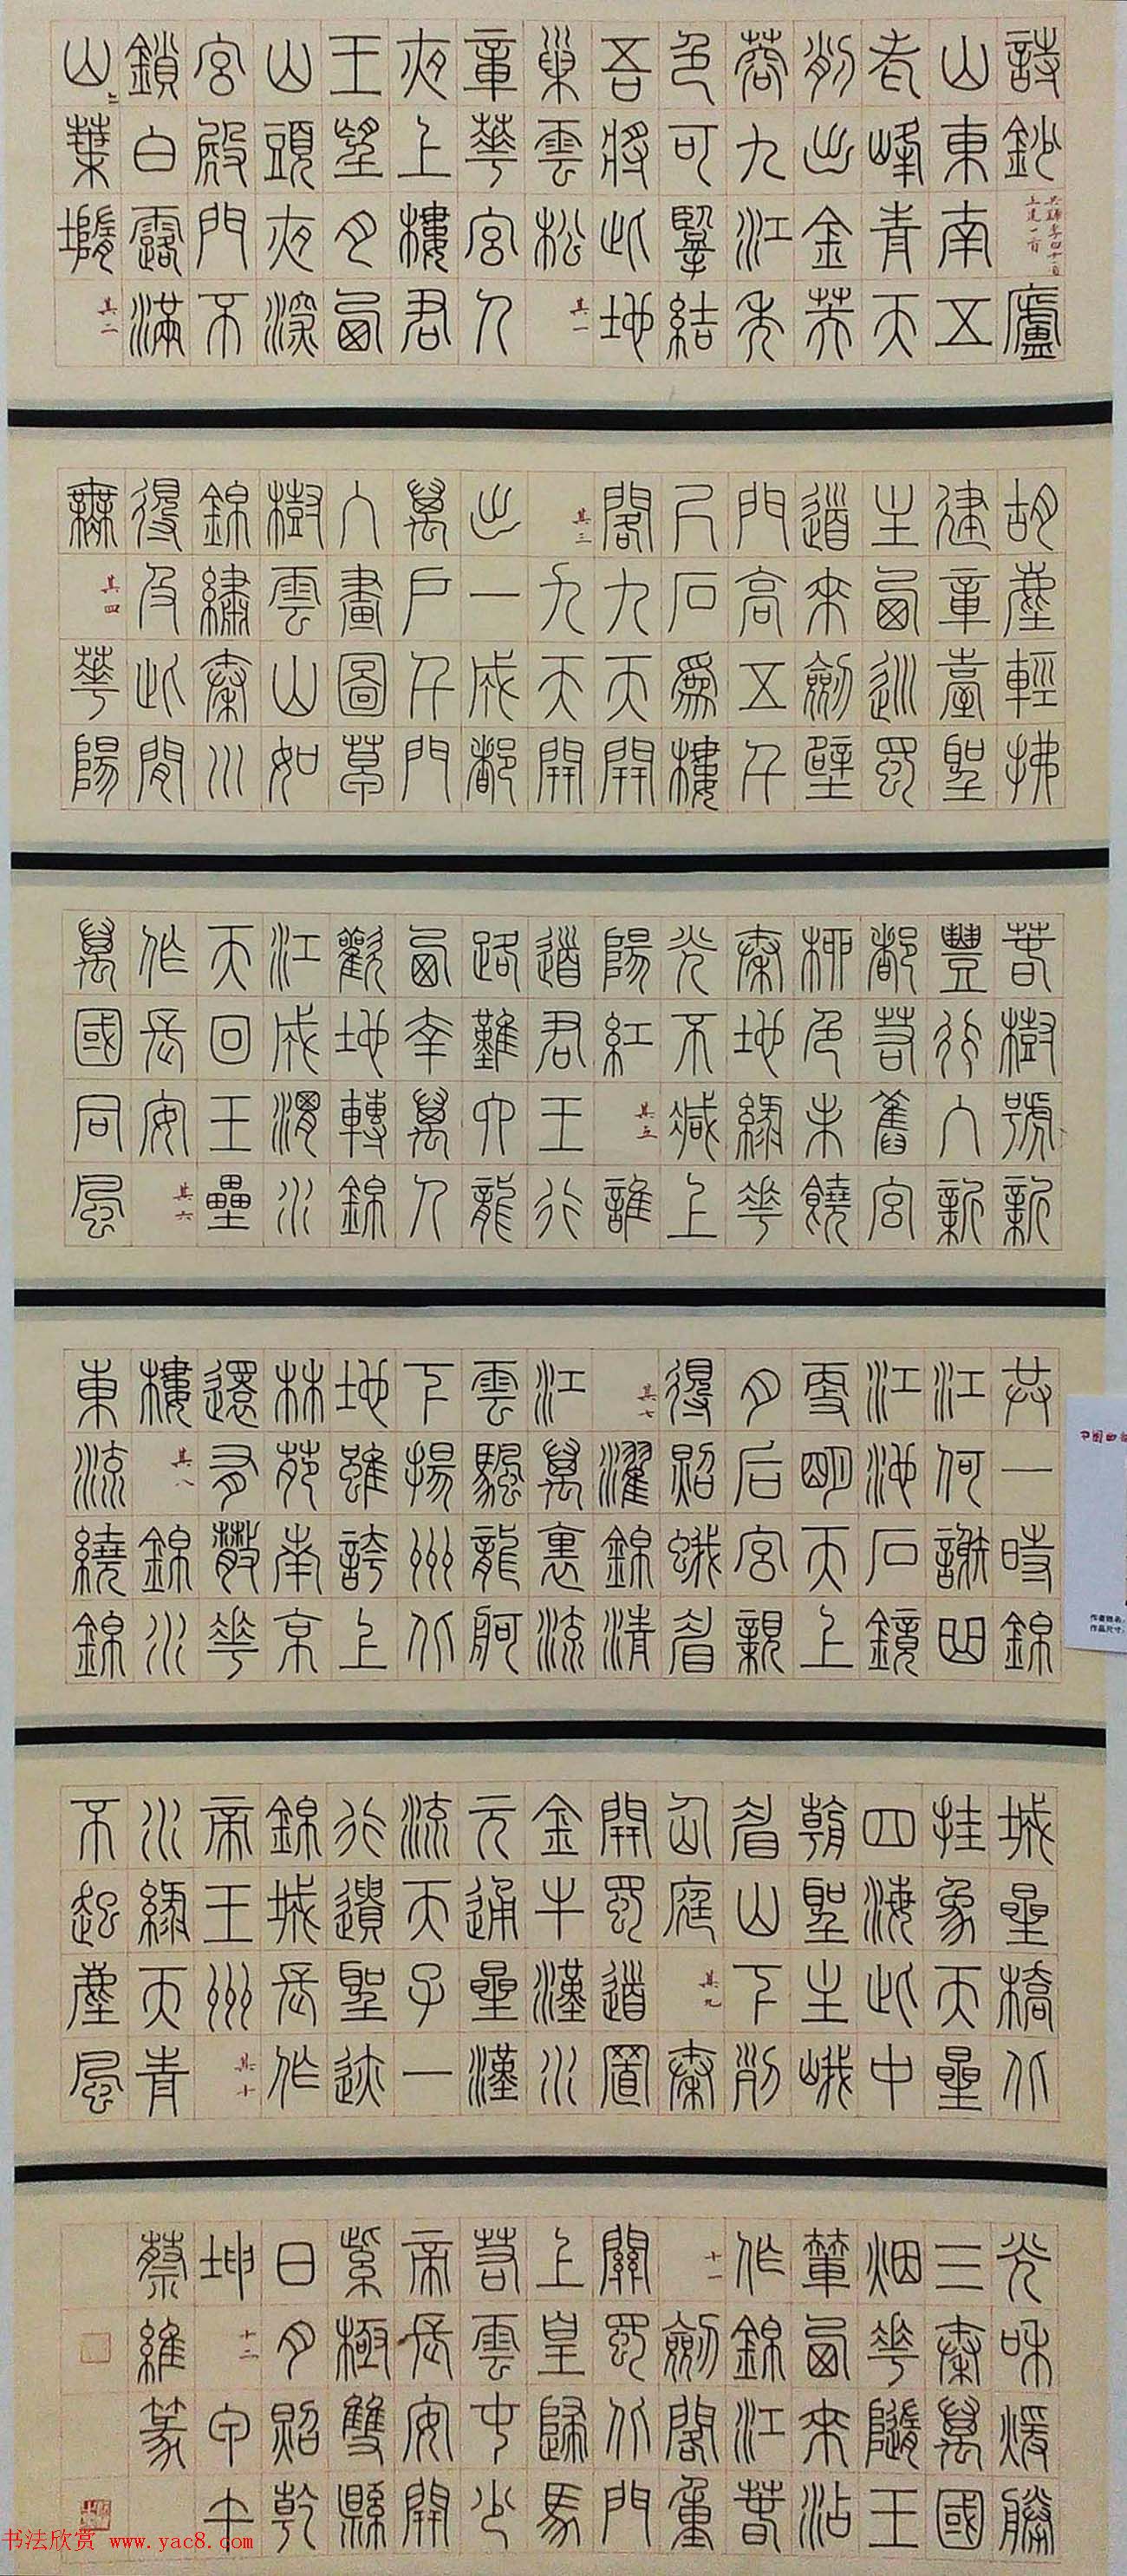 詩鈔 共録李白十一首 王建一首 廬
山東南五
老峰青天
削出金芙
蓉九江秀
色可攬結
吾將此地
巢雲松 其一
章華宮人
夜上樓君
王望月西
山頭夜深
宮殿門不
鎖白露滿
山〻葉墮 其二
胡塵輕拂
建章臺聖
主西巡蜀
道來劍壁
門高五千
尺石為樓
閣九天開
其三 九天開
出一成都
萬戶千門
入畫圖草
樹雲山如
錦繡秦川
得及此間
無 其四 華陽
春樹號新
豐行入新
都若舊宮
柳色未饒
秦地綠花
光不減上
陽紅 其五 誰
道君王行
路難六龍
西幸萬人
歡地轉錦
江成渭水
天回玉壘
作長安 其六
萬國同風
共一時錦
江何謝曲
江池石鏡
更明天上
月后宮親
得照蛾眉
其七 濯錦清
江萬里流
雲帆龍舸
下揚州北
地雖誇上
林苑南京
還有散花
樓 其八 錦水
東流繞錦
城星橋北
挂象天星
四海此中
朝聖主峨
眉山下列
仙庭 其九 秦
開蜀道置
金牛漢水
元通星漢
流天子一
行遺聖跡
錦城長作
帝王州 其十
水綠天青
不起塵風
光和暖勝
三秦萬國
烟花隨玉
輦西來添
作錦江春
十一 劍閣重
關蜀北門
上皇歸馬
若雲屯少
帝長安開
紫極雙懸
日月照乾
坤 十二 甲午
蔡維篆
作者姓名：
作品尺寸：
书法欣赏 www.yac8.com